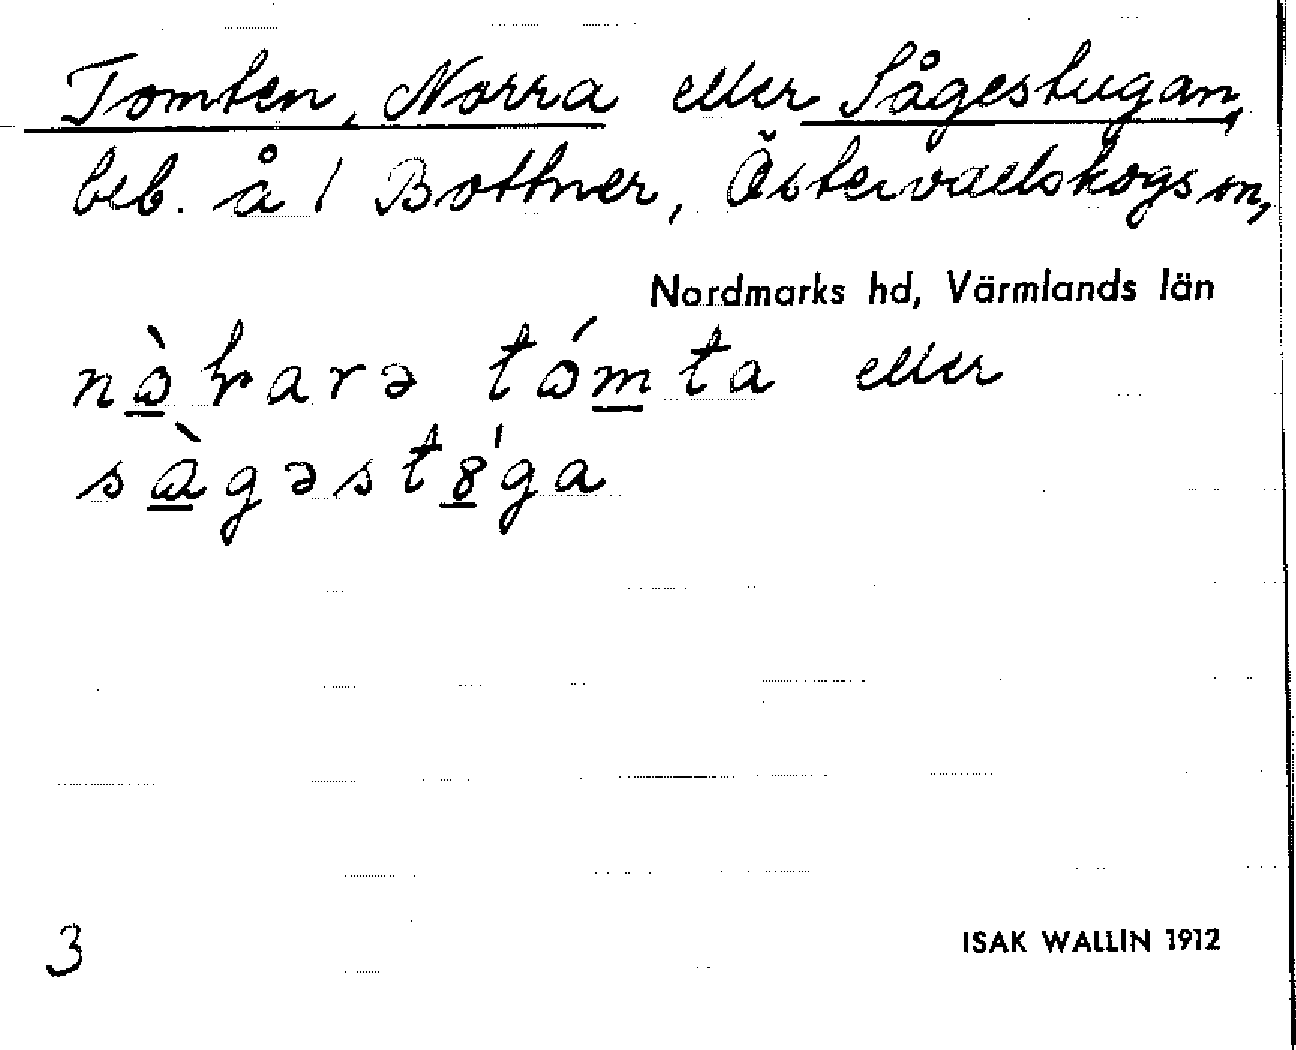 Tomten, Norra eller Sågestugan,
beb. å 1 Bottner, Östervallskogs sn,
Nordmarks hd, Värmlands län
nòrarə tómta eller
sàgəst8́ga
3
ISAK WALLIN 1912